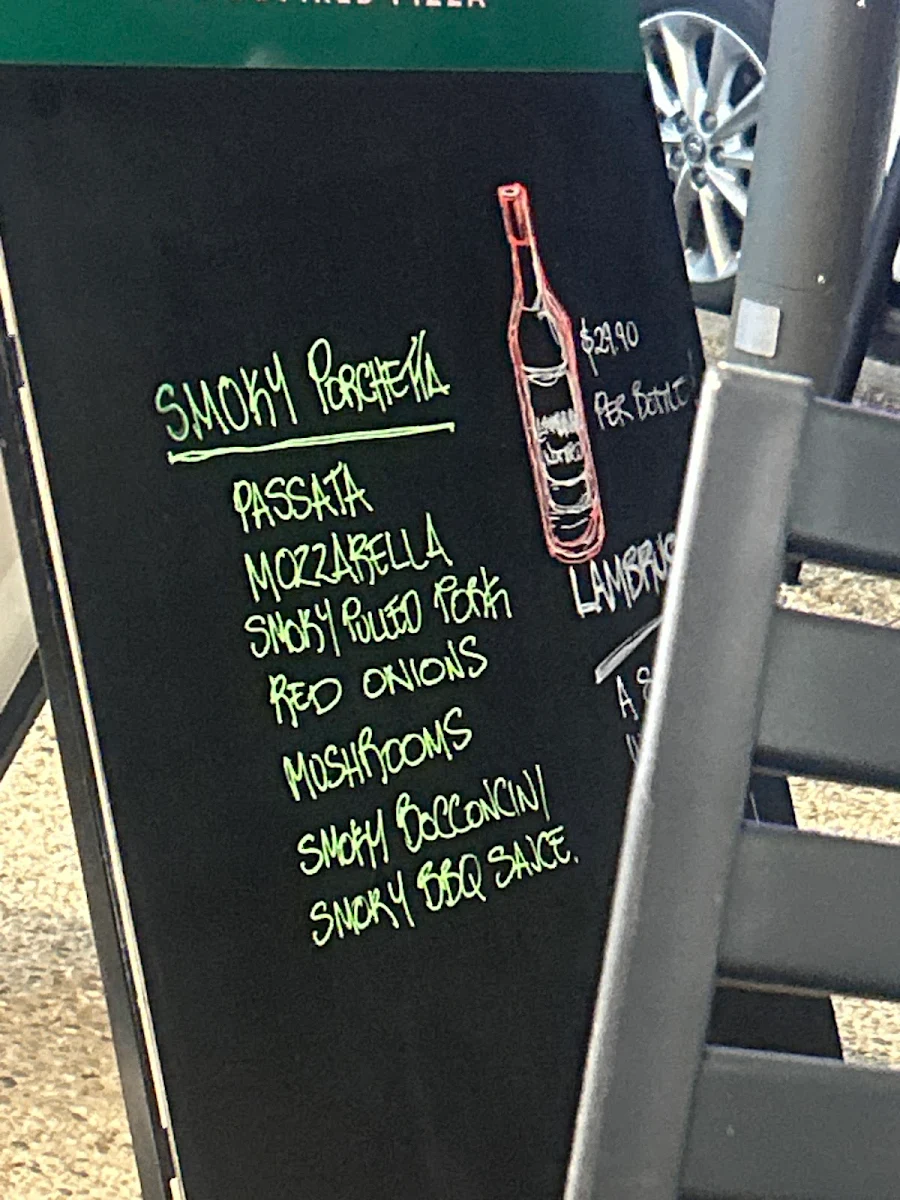 PIZZA
SMOKY PORCHETTA
PASSATA
MOZZARELLA
SMOKY PULLED PORK
RED ONIONS
MUSHROOMS
SMOKY BOCCONCINI
SMOKY BBQ SAUCE.
$29.90
PER BOTTLE
LAMBRUS
A S